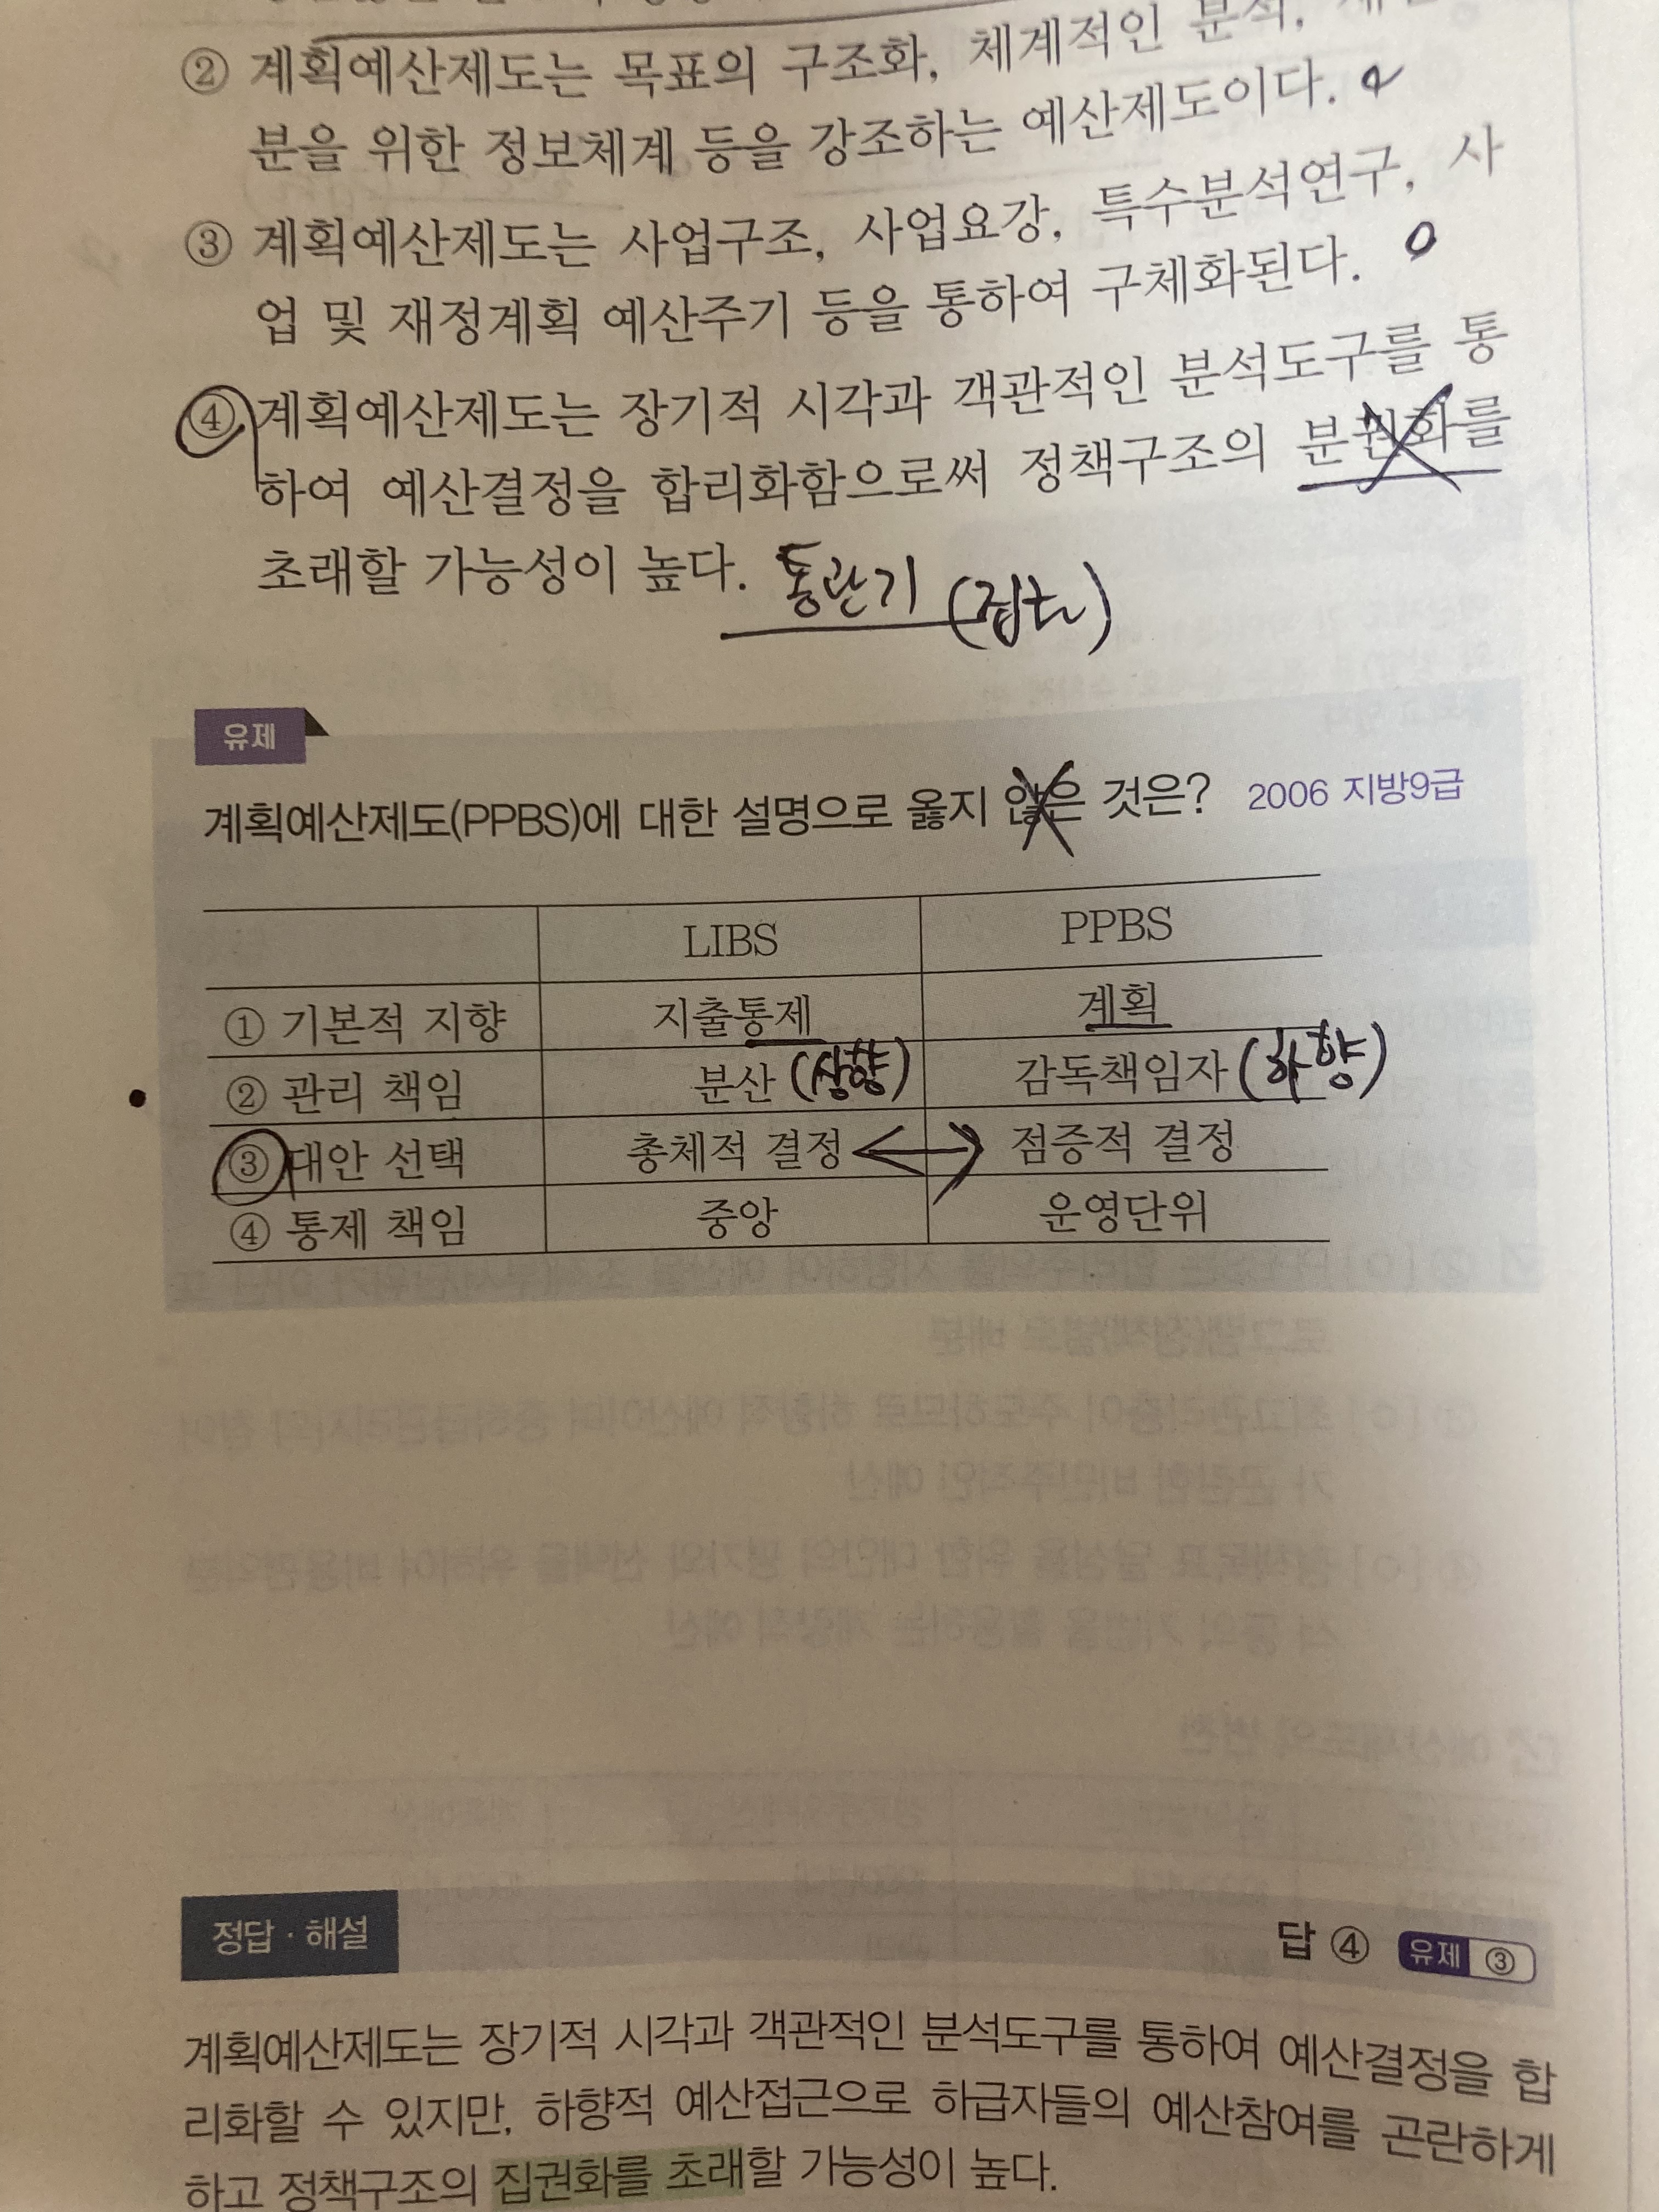 ② 계획예산제도는 목표의 구조화, 체계적인 분석,
분을 위한 정보체계 등을 강조하는 예산제도이다.
③ 계획예산제도는 사업구조, 사업요강, 특수분석연구, 사
업 및 재정계획 예산주기 등을 통하여 구체화된다. O
④ 계획예산제도는 장기적 시각과 객관적인 분석도구를 통
하여 예산결정을 합리화함으로써 정책구조의 분권화를
초래할 가능성이 높다. 통관기
유제
계획예산제도(PPBS)에 대한 설명으로 옳지 않은 것은? 2006 지방9급
LIBS PPBS
① 기본적 지향 지출통제 계획
② 관리 책임 분산 (상향) 감독책임자 (하향)
③ 대안 선택 총체적 결정 점증적 결정
④ 통제 책임 중앙 운영단위
정답·해설 답 ④ 유제 ③
계획예산제도는 장기적 시각과 객관적인 분석도구를 통하여 예산결정을 합
리화할 수 있지만, 하향적 예산접근으로 하급자들의 예산참여를 곤란하게
하고 정책구조의 집권화를 초래할 가능성이 높다.